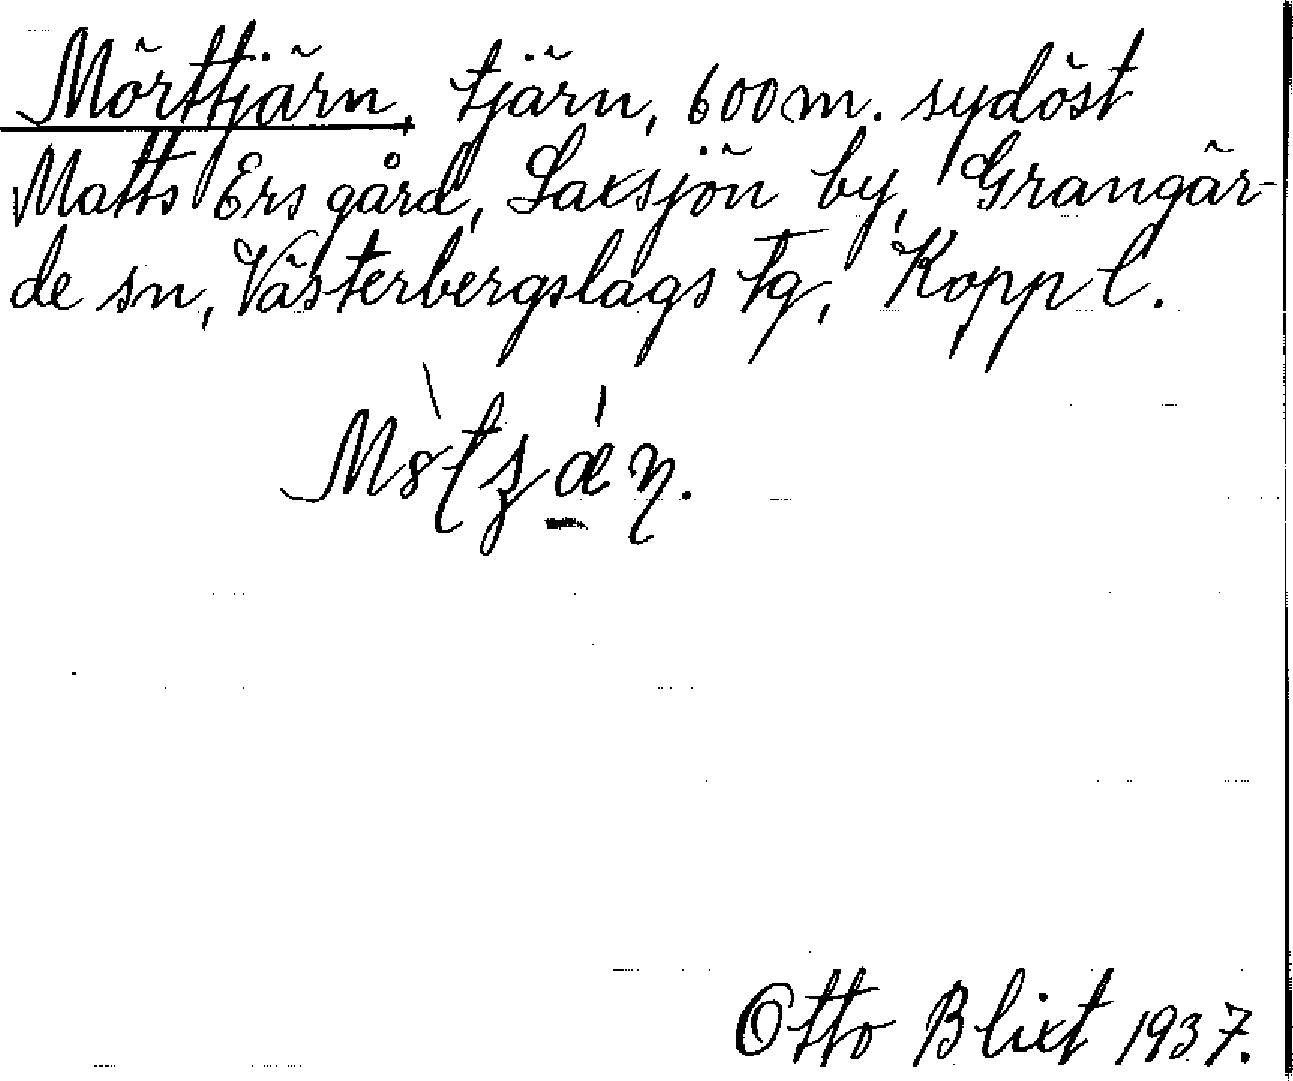 Mörttjärn, tjärn, 600 m. sydöst
Matts Ers gård, Laxsjön by, Grangär-
de sn, Västerbergslags Tg, Kopp l.
Otto Blixt 1937.